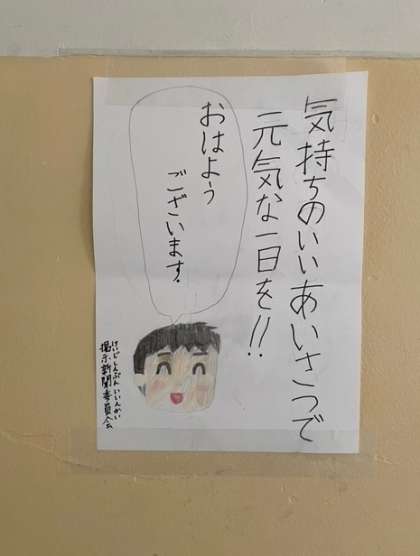 気持ちのいいあいさつで
元気な一日を!!
おはよう
ございます。
けいじしんぶんいいんかい
掲示新聞委員会